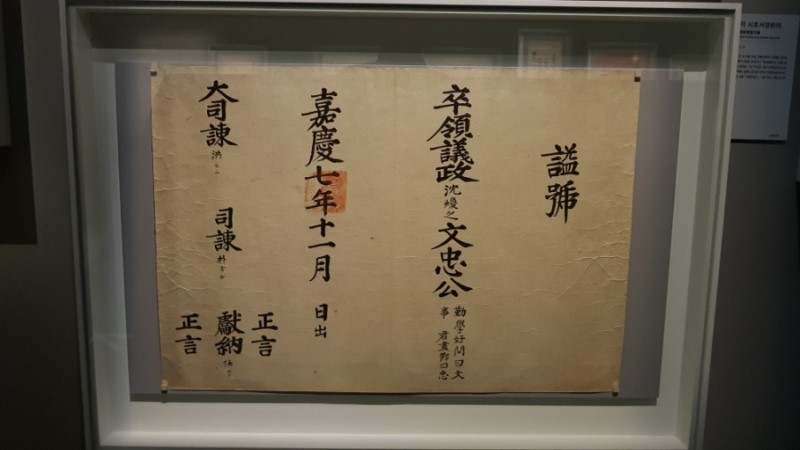 諡號
卒領議政沈煥之文忠公
勤學好問曰文
事君盡節曰忠
嘉慶七年十一月 日出
大司諫洪
司諫朴
正言
獻納
正言
시호서경완의